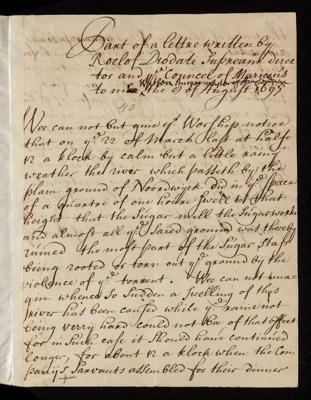 Part of a lettre written by
Roelof Diodati Supream Direc
tor and yᵉ Councel of Mauricius
to me the 9 of August 1695
40
Wee can not but give yᵉ Worship notice
that on yᵉ 22 of March last at halfe
12 a klock by calm but a little rain
weather the river which passeth by the
plain ground of Noordwyck did in yᵉ space
of a quartre of one houre swell to that
height that the Sugar mill the Sugar works
and almost all yᵉ saied ground was thereby
ruined the most part of the Sugar Stafs
being rooted or torn out yᵉ ground by the
violence of yᵉ torrent. Wee can not ima
gin whence so sudden a swelling of this
river has been caused while yᵉ raine not
being verry hard could not be of that effect
for in such case it should have continued
longer, for about 12 a klock when the Com
party's Sarvants assembled for their dinner